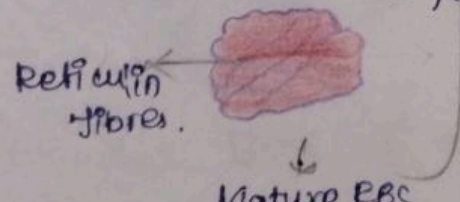 Reticulin
fibres.
Mature RBC